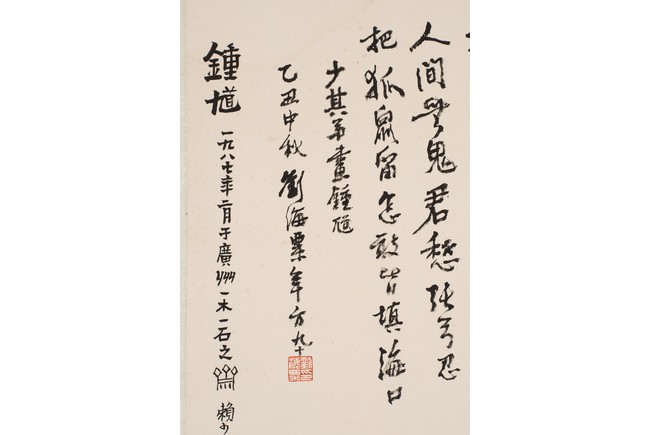 人間無鬼君愁忍
把狐鼠留怎皆填海口
少其弟畫鍾馗
乙丑中秋劉海粟年方九十
鍾馗 一九八七年二月于廣州一木一石之 賴少